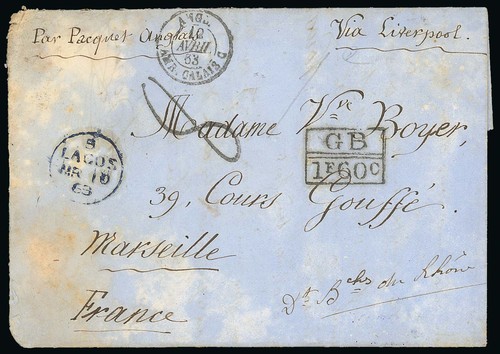 Par Pacquet Anglais
Via Liverpool.
ANGL.
AVRIL
63
AMB. CALAIS
Madame Vve Boyer,
GB
1F60C
LAGOS
MR 10
63
39, Cours Gouffé,
Marseille
France
Dt Bches du Rhône